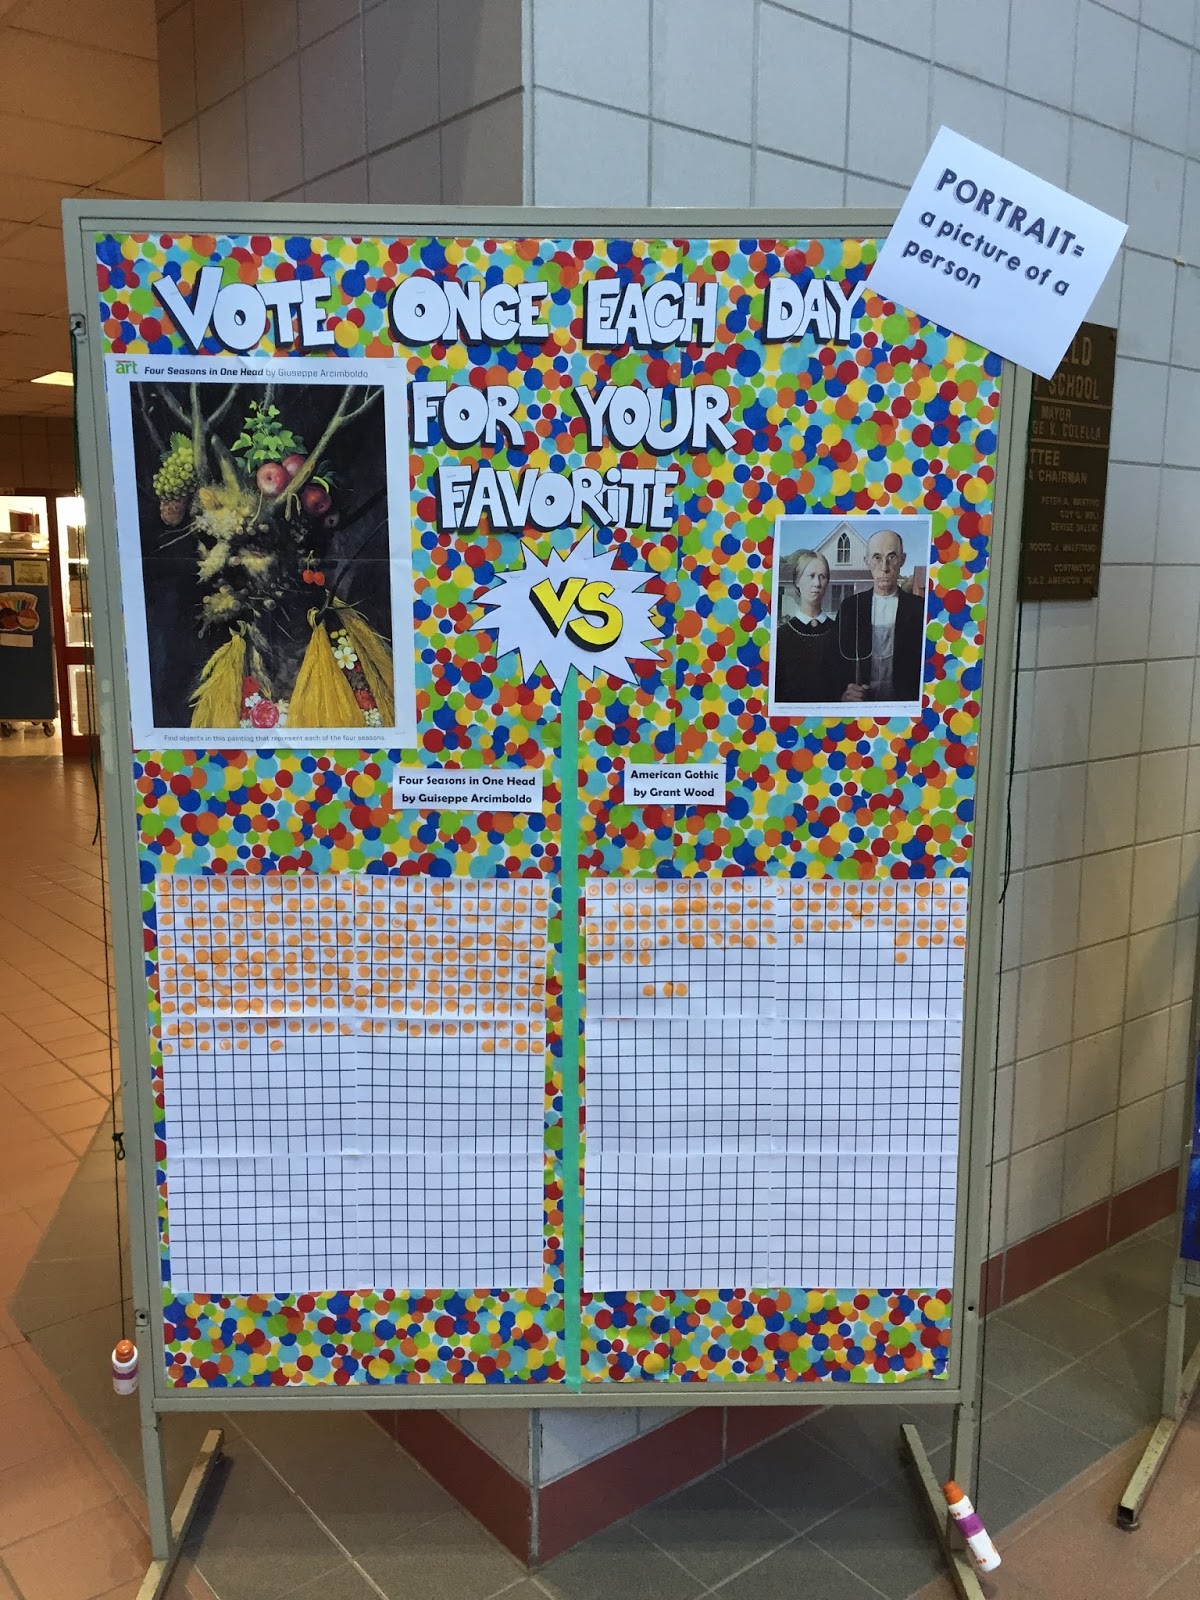 VOTE ONCE EACH DAY
FOR YOUR
FAVORiTE
VS
PORTRAIT=
a picture of a
person
art Four Seasons in One Head by Giuseppe Arcimboldo
Find objects in this painting that represent each of the four seasons.
Four Seasons in One Head
by Guiseppe Arcimboldo
American Gothic
by Grant Wood
SCHOOL
MAYOR
V. COLELLA
CHAIRMAN
PETER A. MARTINO
ROCCO J. MALFITANO
CONTRACTOR